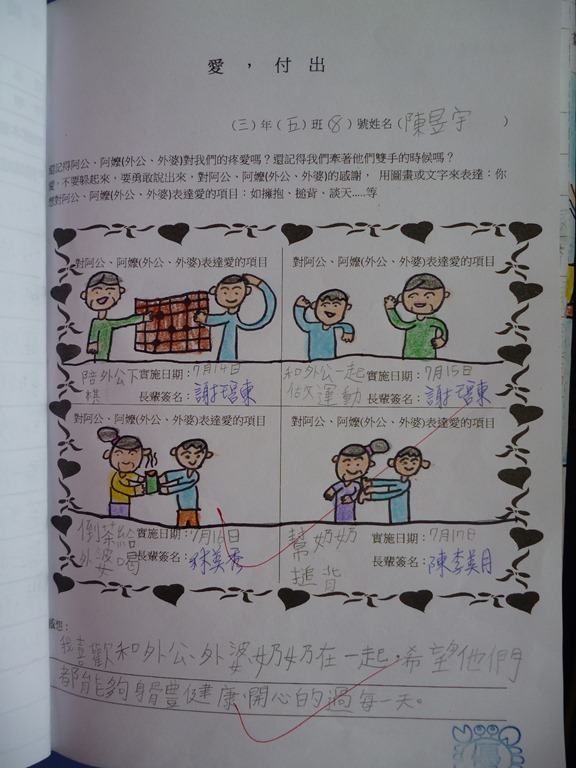 愛，付出
（三）年（五）班（8）號姓名（陳昱宇）
還記得阿公、阿嬤(外公、外婆)對我們的疼愛嗎？還記得我們牽著他們雙手的時候嗎？
愛，不要躲起來，要勇敢說出來，對阿公、阿嬤(外公、外婆)的感謝， 用圖畫或文字來表達：你
想對阿公、阿嬤(外公、外婆)表達愛的項目：如擁抱、搥背、談天.....等
對阿公、阿嬤(外公、外婆)表達愛的項目
陪外公下棋
實施日期：7月14日
長輩簽名：
對阿公、阿嬤(外公、外婆)表達愛的項目
和外公一起做運動
實施日期：7月15日
長輩簽名：
對阿公、阿嬤(外公、外婆)表達愛的項目
倒茶給外婆喝
實施日期：7月16日
長輩簽名：林美秀
對阿公、阿嬤(外公、外婆)表達愛的項目
幫奶奶搥背
實施日期：7月17日
長輩簽名：陳李美月
感想：
我喜歡和外公、外婆、奶奶在一起，希望他們
都能夠身體健康、開心的過每一天。
優